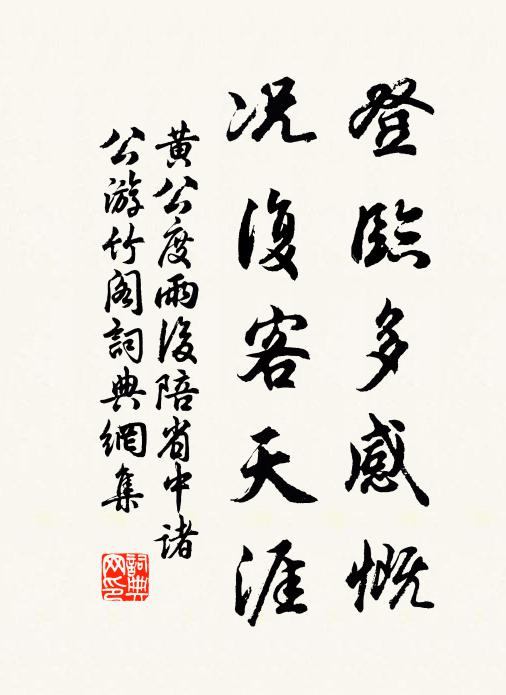 登臨多感慨
况復客天涯
黄公度雨後陪省中諸
公游竹阁詞典網集
詞典网印